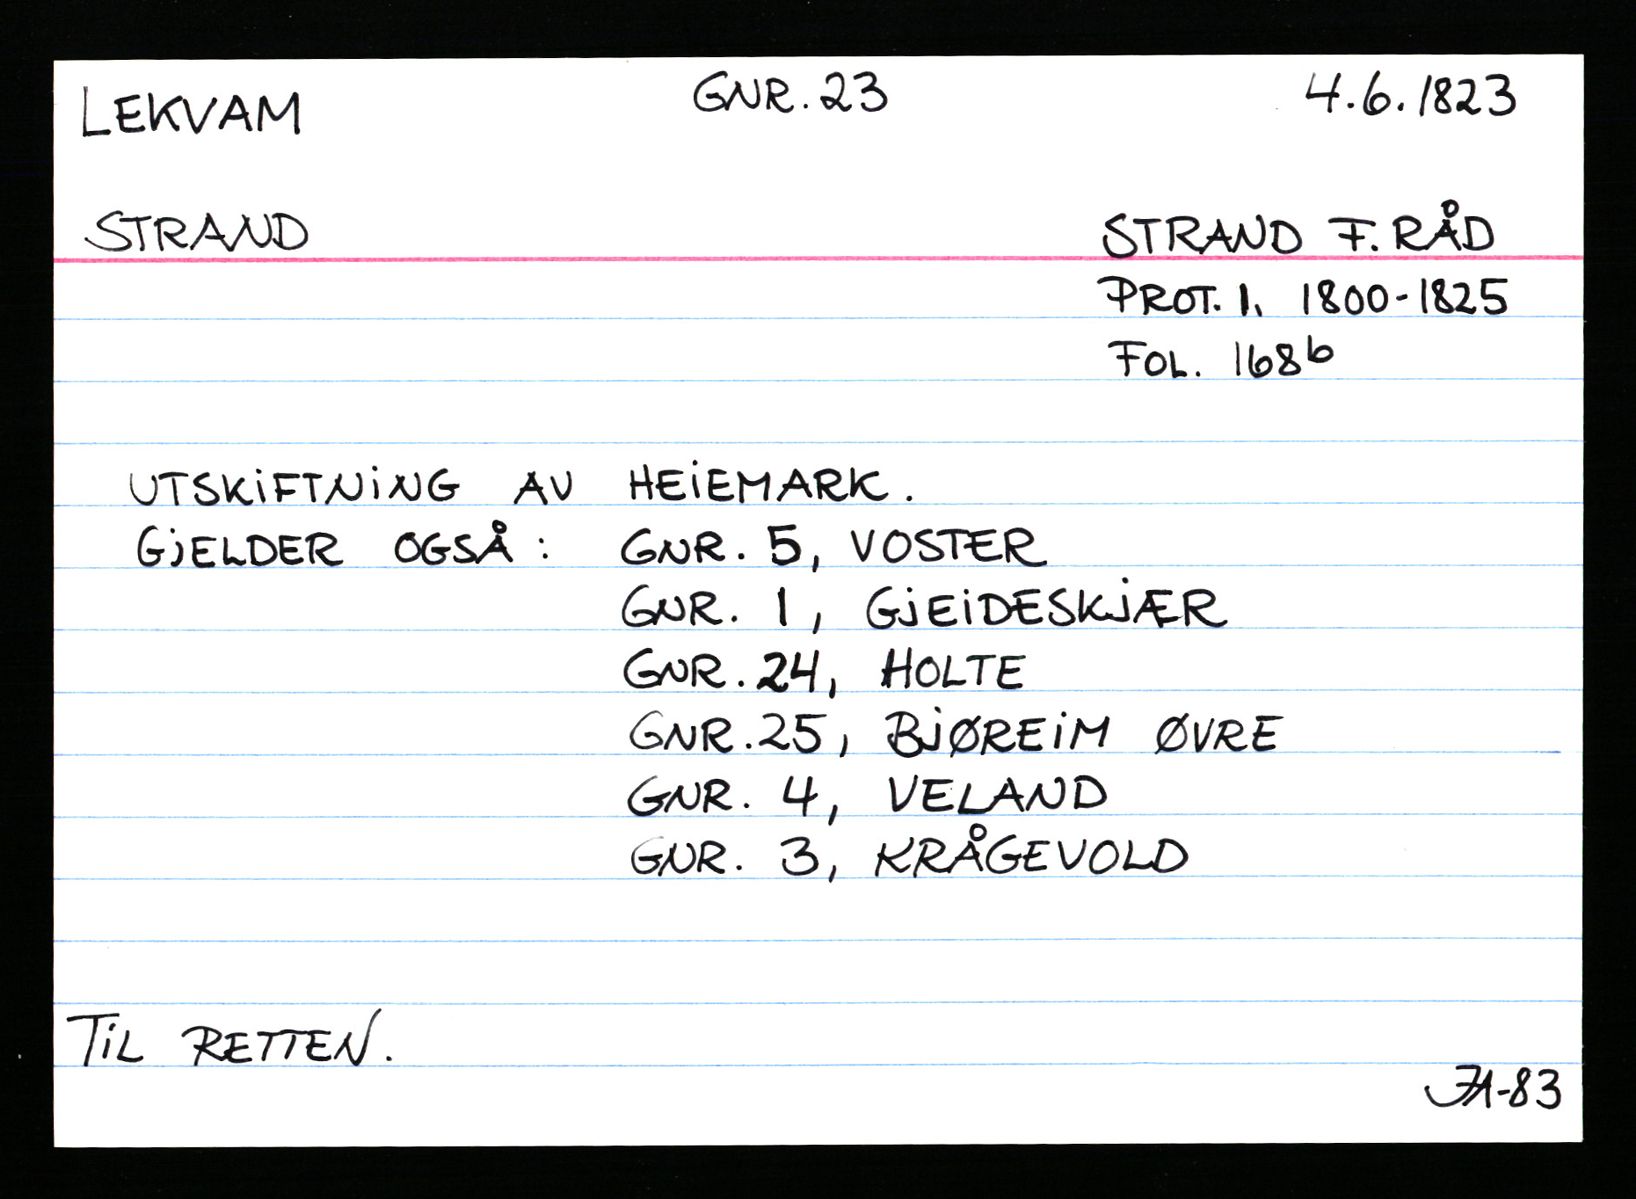 LEKVAM GNR. 23 4.6.1823
STRAND STRAND F. RÅD
PROT. 1, 1800-1825
FOL. 168b
UTSKiFTNiNG AV HEiEMARK.
GjELDER OGSÅ: GNR. 5, VOSTER
GNR. 1, GjEiDESKjÆR
GNR. 24, HOLTE
GNR. 25, BjØREiM ØVRE
GNR. 4, VELAND
GNR. 3, KRÅGEVOLD
TiL RETTEN.
JA-83